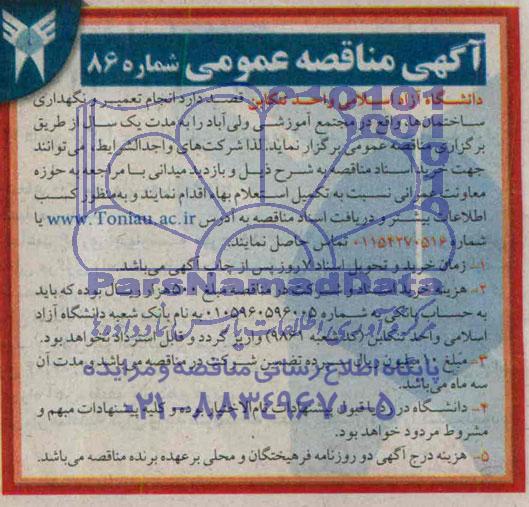 آگهی مناقصه عمومی شماره ۸۶
دانشگاه آزاد اسلامی واحد تنکابن قصد دارد انجام تعمیر و نگهداری
ساختمان‌های واقع در مجتمع آموزشی ولی‌آباد را به مدت یک سال از طریق
برگزاری مناقصه عمومی برگزار نماید. لذا شرکت‌های واجدالشرایط، می‌توانند
جهت خرید اسناد مناقصه به شرح ذیل و بازدید میدانی با مراجعه به حوزه
معاونت عمرانی نسبت به تکمیل استعلام بها، اقدام نمایند و به‌منظور کسب
اطلاعات بیشتر و دریافت اسناد مناقصه به آدرس www.Toniau.ac.ir یا
شماره ۰۱۱۵۴۲۷۰۵۱۶ تماس حاصل نمایند.
۱- زمان خرید و تحویل اسناد ۷ روز پس از چاپ آگهی می‌باشد.
۲- هزینه خرید اسناد و شرکت در مناقصه مبلغ ۵۰۰ هزار ریال بوده که باید
به حساب بانکی به شماره ۰۱۰۵۹۶۰۵۹۶۰۰۵ به نام بانک شعبه دانشگاه آزاد
اسلامی واحد تنکابن (کد شعبه ۹۸۶۹) واریز گردد و قابل استرداد نخواهد بود.
۳- مبلغ ۱۰ میلیون ریال سپرده تضمین شرکت در مناقصه می‌باشد و مدت آن
سه ماه می‌باشد.
۴- دانشگاه در رد یا قبول پیشنهادات تام‌الاختیار بوده و کلیه پیشنهادات مبهم و
مشروط مردود خواهد بود.
۵- هزینه درج آگهی دو روزنامه فرهیختگان و محلی بر عهده برنده مناقصه می‌باشد.
ParsNamadData
پایگاه اطلاع رسانی مناقصه و مزایده
۰۲۱-۸۸۳۴۹۶۷۰-۵